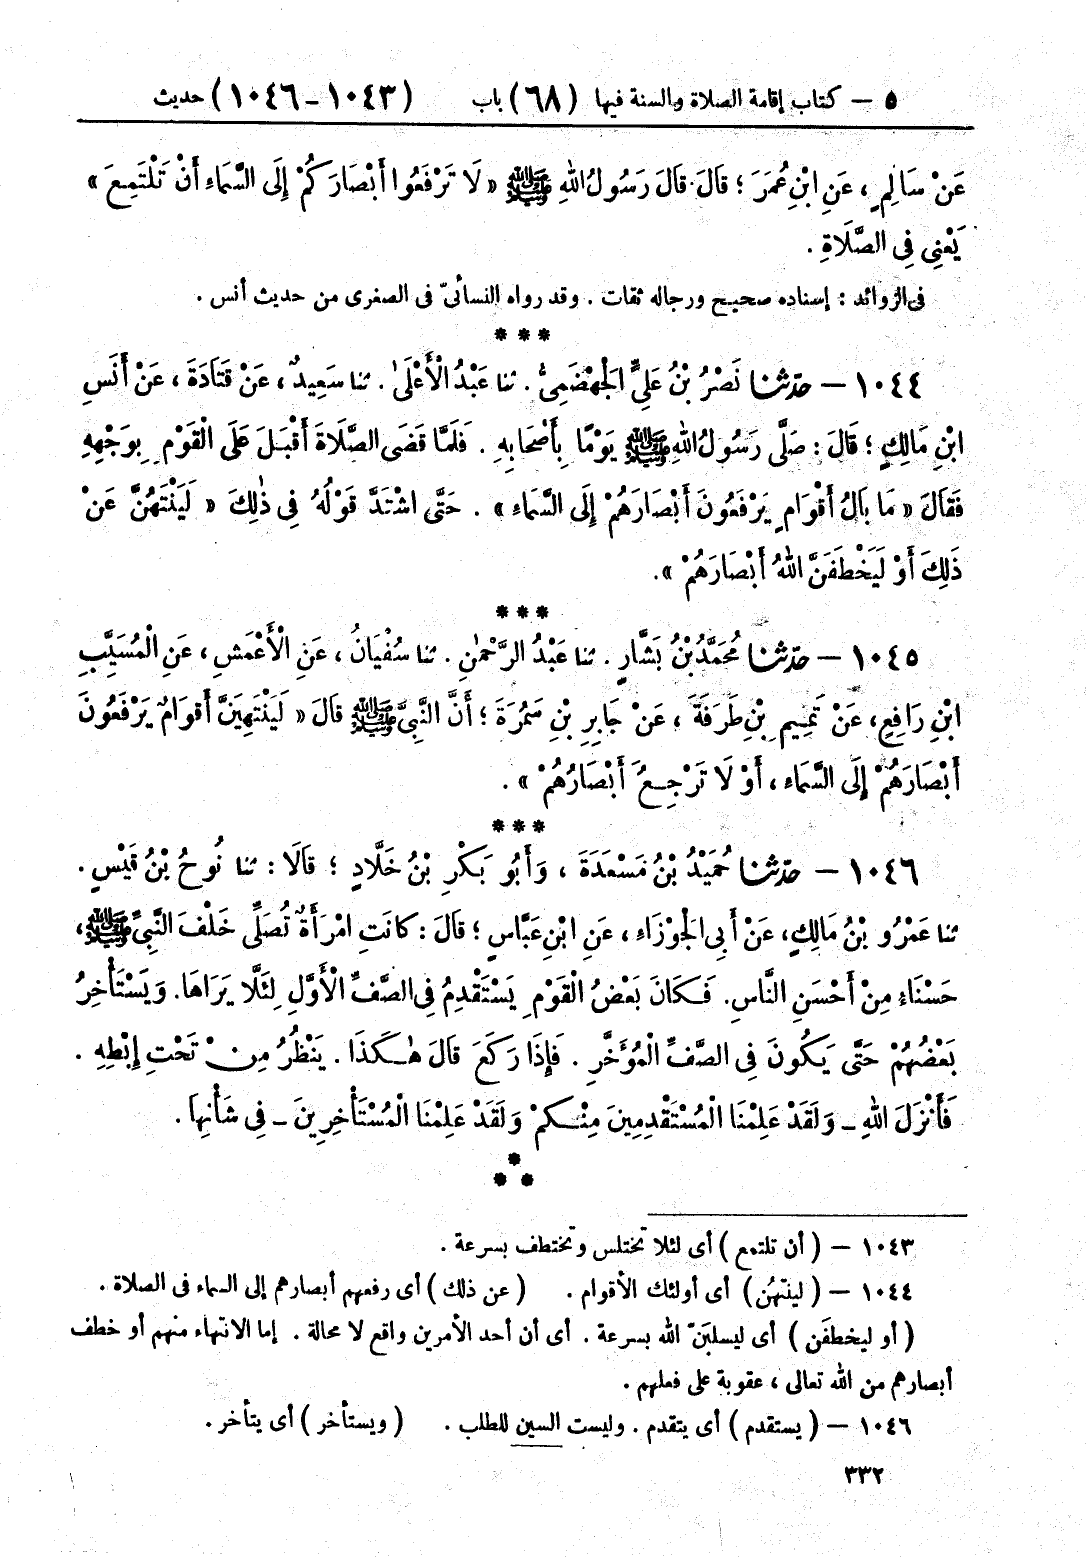 ٥ – كتاب إقامة الصلاة والسنة فيها (٦٨) باب (١٠٤٣ – ١٠٤٦) حديث
عَنْ سَالِمٍ، عَنِ ابْنِ عُمَرَ؛ قَالَ قَالَ رَسُولُ اللهِ ﷺ «لَا تَرْفَعُوا أَبْصَارَكُمْ إِلَى السَّمَاءِ أَنْ تَلْتَمِعَ»
يَعْنِي فِي الصَّلَاةِ.
فى الزوائد : إسناده صحيح ورجاله ثقات . وقد رواه النسائىّ فى الصغرى من حديث أنس .
***
١٠٤٤ – حدّثنا نَصْرُ بْنُ عَلِيٍّ الْجَهْضَمِيُّ . ثنا عَبْدُ الْأَعْلَىٰ . ثنا سَعِيدٌ ، عَنْ قَتَادَةَ ، عَنْ أَنَسِ
ابْنِ مَالِكٍ؛ قَالَ : صَلَّى رَسُولُ اللهِ ﷺ يَوْمًا بِأَصْحَابِهِ . فَلَمَّا قَضَى الصَّلَاةَ أَقْبَلَ عَلَى الْقَوْمِ بِوَجْهِهِ
فَقَالَ «مَا بَالُ أَقْوَامٍ يَرْفَعُونَ أَبْصَارَهُمْ إِلَى السَّمَاءِ» . حَتَّى اشْتَدَّ قَوْلُهُ فِي ذٰلِكَ «لَيَنْتَهُنَّ عَنْ
ذَلِكَ أَوْ لَيَخْطَفَنَّ اللهُ أَبْصَارَهُمْ».
***
١٠٤٥ – حدّثنا مُحَمَّدُ بْنُ بَشَّارٍ . ثنا عَبْدُ الرَّحْمٰنِ . ثنا سُفْيَانُ ، عَنِ الْأَعْمَشِ ، عَنِ الْمُسَيَّبِ
ابْنِ رَافِعٍ، عَنْ تَمِيمِ بْنِ طَرَفَةَ ، عَنْ جَابِرِ بْنِ سَمُرَةَ؛ أَنَّ النَّبِيَّ ﷺ قَالَ «لَيَنْتَهِيَنَّ أَقْوَامٌ يَرْفَعُونَ
أَبْصَارَهُمْ إِلَى السَّمَاءِ ، أَوْ لَا تَرْجِعُ أَبْصَارُهُمْ» .
***
١٠٤٦ – حدّثنا حُمَيْدُ بْنُ مَسْعَدَةَ ، وَأَبُو بَكْرِ بْنُ خَلَّادٍ ؛ قَالَا : ثنا نُوحُ بْنُ قَيْسٍ .
ثنا عَمْرُو بْنُ مَالِكٍ، عَنْ أَبِي الْجَوْزَاءِ ، عَنِ ابْنِ عَبَّاسٍ ؛ قَالَ : كَانَتِ امْرَأَةٌ تُصَلِّي خَلْفَ النَّبِيِّ ﷺ ،
حَسْنَاءِ مِنْ أَحْسَنِ النَّاسِ. فَكَانَ بَعْضُ الْقَوْمِ يَسْتَقْدِمُ فِي الصَّفِّ الْأَوَّلِ لِئَلَّا يَرَاهَا. وَيَسْتَأْخِرُ
بَعْضُهُمْ حَتَّى يَكُونَ فِي الصَّفِّ الْمُؤَخَّرِ . فَإِذَا رَكَعَ قَالَ هٰكَذَا . يَنْظُرُ مِنْ تَحْتِ إِبْطِهِ .
فَأَنْزَلَ اللهُ – وَلَقَدْ عَلِمْنَا الْمُسْتَقْدِمِينَ مِنْكُمْ وَلَقَدْ عَلِمْنَا الْمُسْتَأْخِرِينَ – فِي شَأْنِهَا .
***
١٠٤٣ – (أن تلتمع) أى لئلا تختلس وتختطف بسرعة .
١٠٤٤ – (لينتهُن) أى أولئك الأقوام . (عن ذلك) أى رفعهم أبصارهم إلى السماء فى الصلاة .
(أو ليخطفَن) أى ليسلبَنّ الله بسرعة . أى أن أحد الأمرين واقع لا محالة . إما الانتهاء منهم أو خطف
أبصارهم من الله تعالى ، عقوبة على فعلهم .
١٠٤٦ – (يستقدم) أى يتقدم . وليست السين للطلب . (ويستأخر) أى يتأخر .
٣٣٢